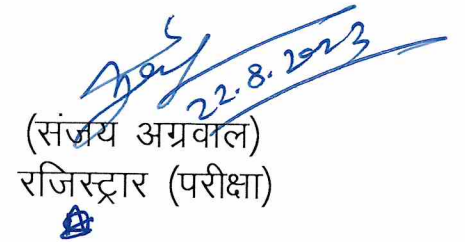 22.8.2023
(संजय अग्रवाल)
रजिस्ट्रार (परीक्षा)